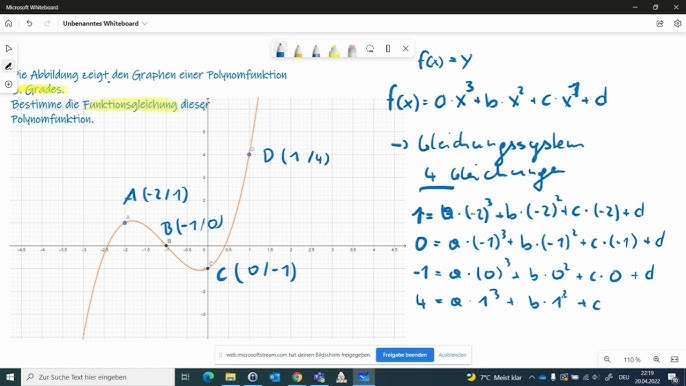 Microsoft Whiteboard
Unbenanntes Whiteboard
Die Abbildung zeigt den Graphen einer Polynomfunktion
3. Grades.
Bestimme die Funktionsgleichung dieser
Polynomfunktion.
f(x) = y
f(x) = a·x³ + b·x² + c·x¹ + d
→ Gleichungssystem
4 Gleichungen
1 = a·(-2)³ + b·(-2)² + c·(-2) + d
0 = a·(-1)³ + b·(-1)² + c·(-1) + d
-1 = a·(0)³ + b·0² + c·0 + d
4 = a·1³ + b·1² + c
D (1/4)
A (-2/1)
B (-1/0)
C (0/-1)
web.microsoftstream.com hat deinen Bildschirm freigegeben.
Freigabe beenden
Ausblenden
110 %
Zur Suche Text hier eingeben
7°C Meist klar
DEU
22:19
20.04.2022